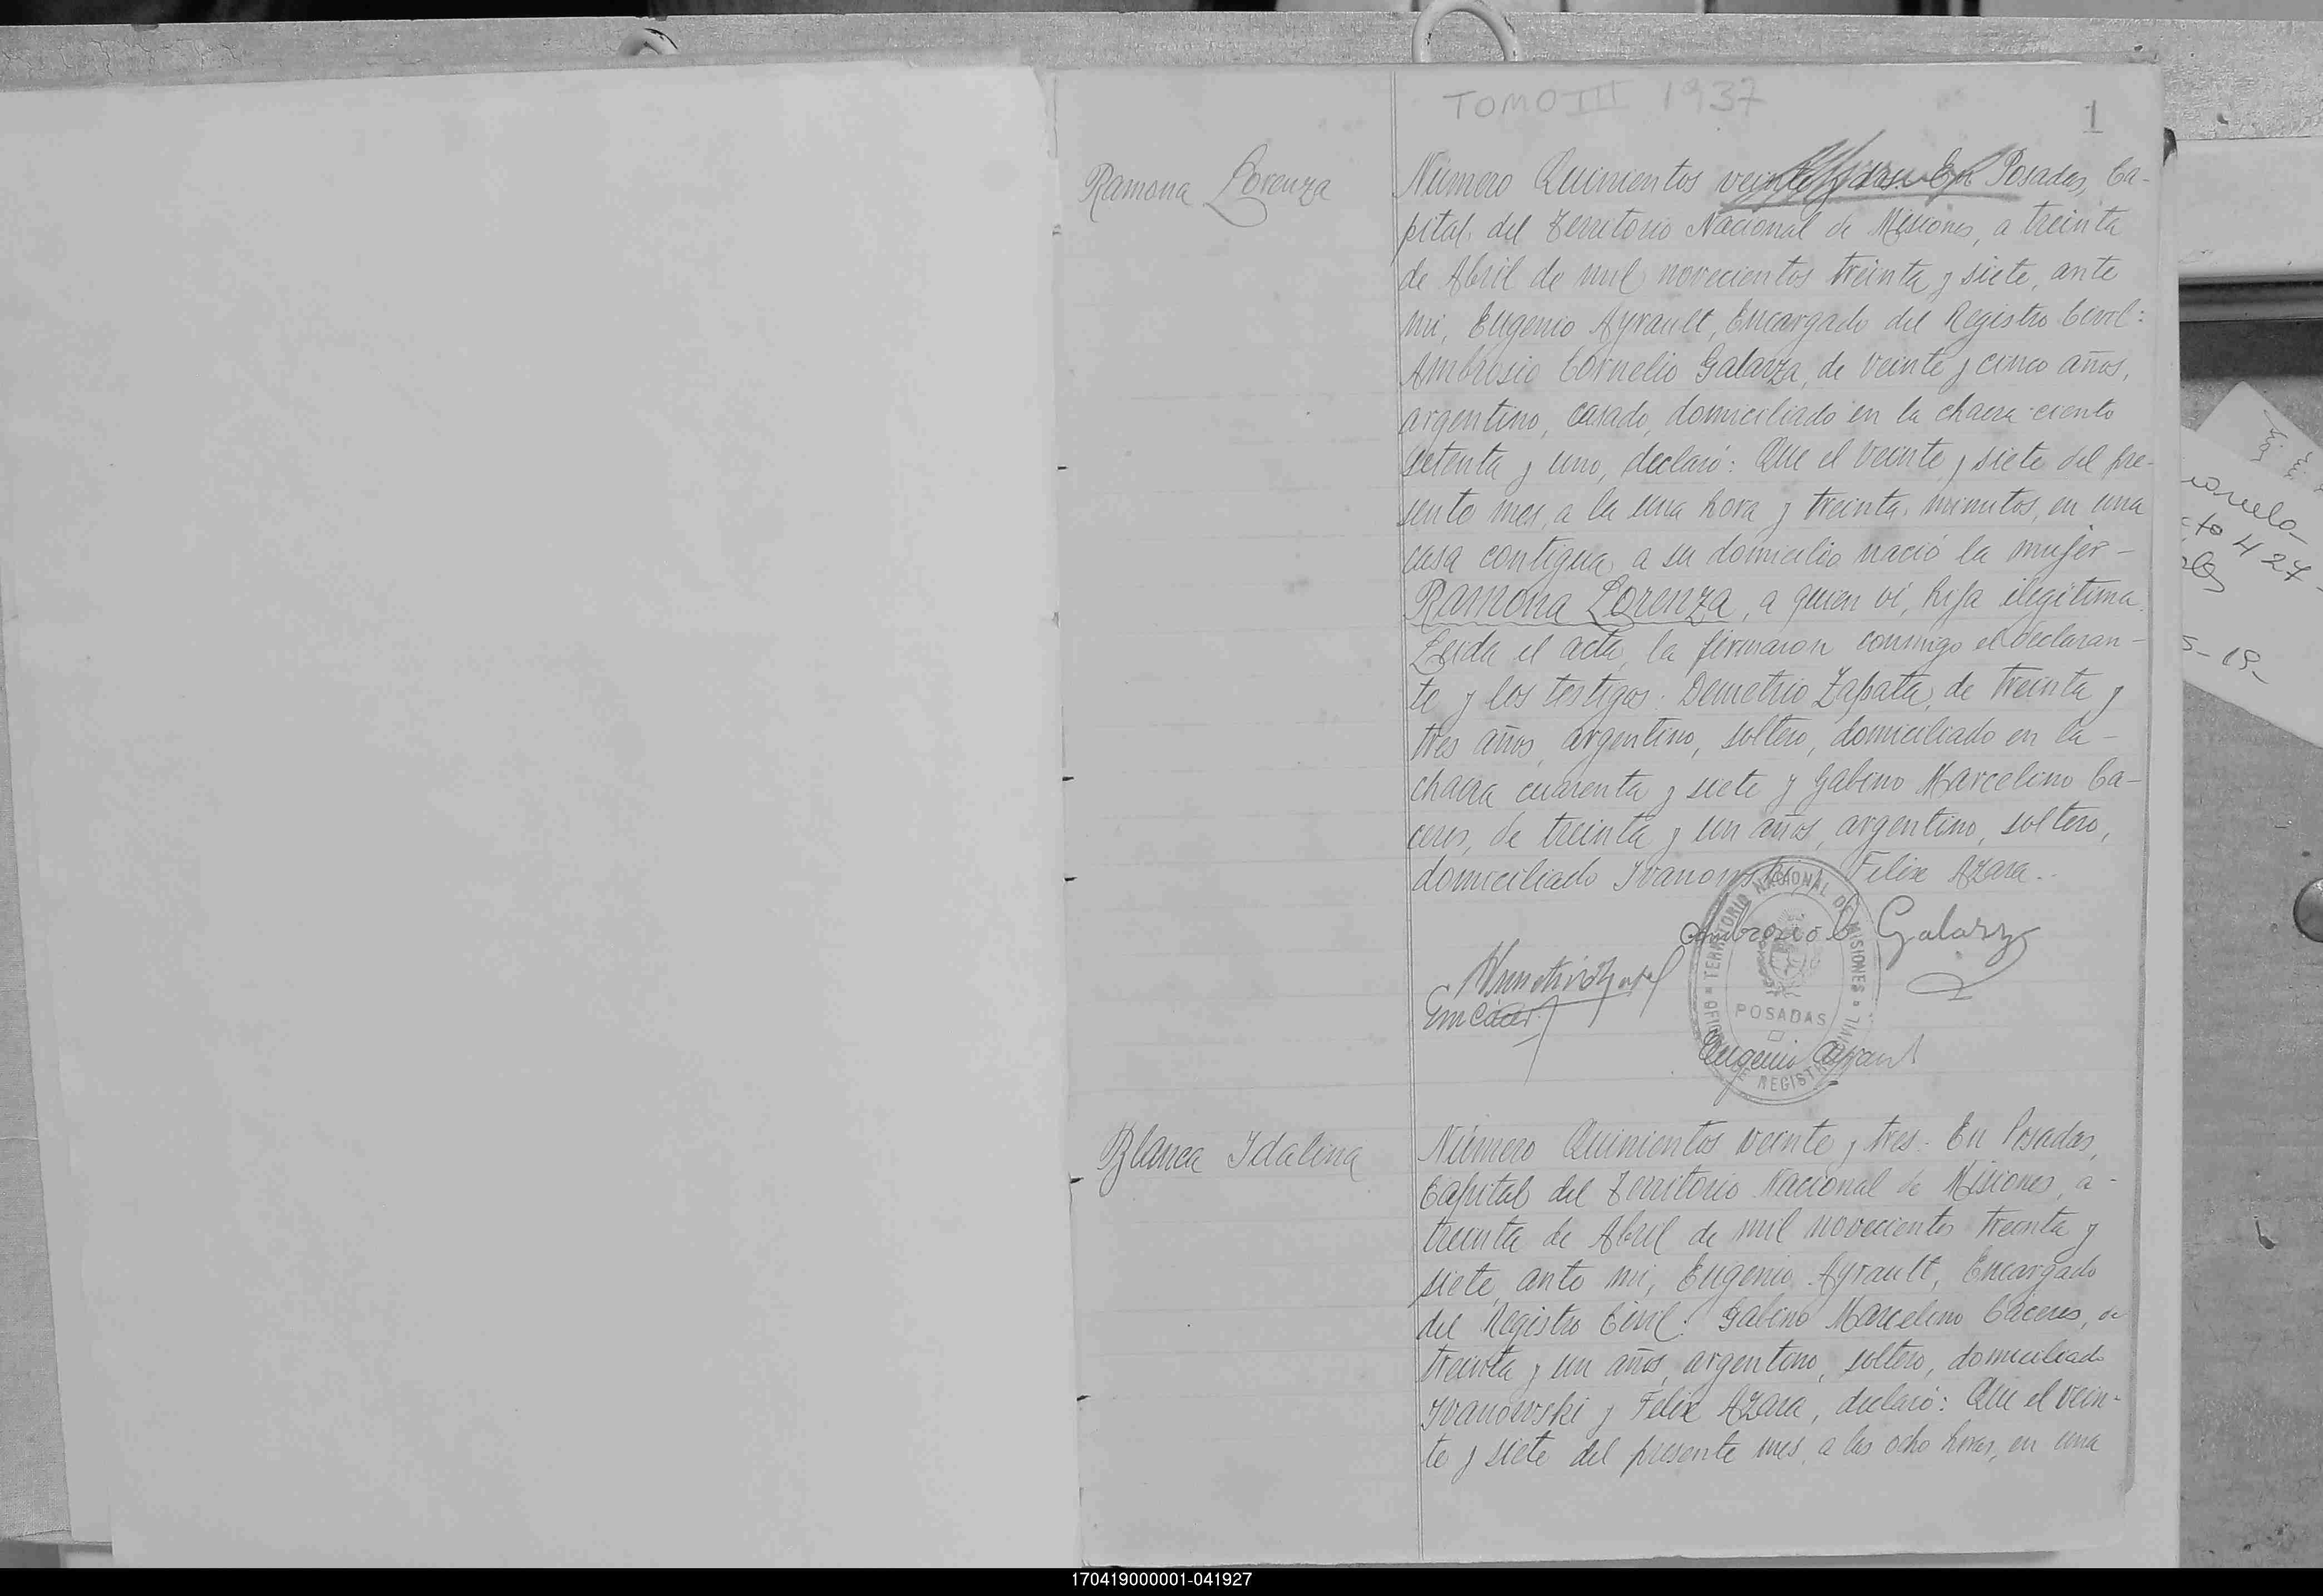 TOMO III 1937
1
Ramona Lorenza
Número Quinientos veinte y dos. En Posadas, Ca-
pital del Territorio Nacional de Misiones, a treinta
de Abril de mil novecientos treinta y siete, ante
mi, Eugenio Ayrault, Encargado del Registro Civil:
Ambrosio Cornelio Galarza, de veinte y cinco años,
argentino, casado, domiciliado en la chacra ciento
setenta y uno, declaró: Que el veinte y siete del pre-
sente mes, a la una hora y treinta minutos, en una
casa contigua a su domicilio nació la mujer-
Ramona Lorenza, a quien vi, hija ilegitima.
Leida el acta, la firmaron conmigo el declaran-
te y los testigos: Demetrio Zapata, de treinta y
tres años, argentino, soltero, domiciliado en la-
chacra cuarenta y siete y Gabino Marcelino Ca-
ceres, de treinta y un años, argentino, soltero,
domiciliado Ivanowski y Felix Azara.
Ambrosio C Galarza
TERRITORIO NACIONAL DE MISIONES
POSADAS
Eugenio Ayrault
Blanca Idalina
Número Quinientos veinte y tres. En Posadas,
Capital del Territorio Nacional de Misiones, a-
treinta de Abril de mil novecientos treinta y
siete, ante mi, Eugenio Ayrault, Encargado
del Registro Civil: Gabino Marcelino Cáceres, de
treinta y un años, argentino, soltero, domiciliado
Ivanowski y Felix Azara, declaró: Que el vein-
te y siete del presente mes, a las ocho horas, en una
427
170419000001-041927